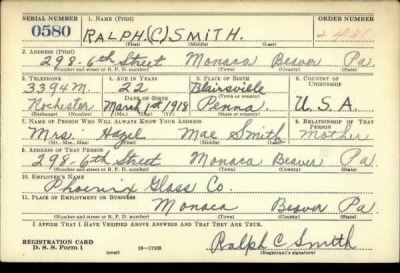 SERIAL NUMBER 1. NAME (Print) ORDER NUMBER
0580 RALPH (C) SMITH.
(First) (Middle) (Last)
2. ADDRESS (Print)
298-6th Street Monaca Beaver Pa.
(Number and street or R. F. D. number) (Town) (County) (State)
3. TELEPHONE 4. AGE IN YEARS 5. PLACE OF BIRTH 6. COUNTRY OF CITIZENSHIP
3394M. 22 Blairsville
DATE OF BIRTH (Town or county)
Rochester March 1st 1918 Penna. U.S.A.
(Exchange) (Number) (Mo.) (Day) (Yr.) (State or country)
7. NAME OF PERSON WHO WILL ALWAYS KNOW YOUR ADDRESS 8. RELATIONSHIP OF THAT PERSON
Mrs. Hazel Mae Smith Mother
(Mr., Mrs., Miss) (First) (Middle) (Last)
9. ADDRESS OF THAT PERSON
298-6th Street Monaca Beaver Pa.
(Number and street or R. F. D. number) (Town) (County) (State)
10. EMPLOYER'S NAME
Phoenix Glass Co.
11. PLACE OF EMPLOYMENT OR BUSINESS
Monaca Beaver Pa.
(Number and street or R. F. D. number) (Town) (County) (State)
I AFFIRM THAT I HAVE VERIFIED ABOVE ANSWERS AND THAT THEY ARE TRUE.
REGISTRATION CARD
D. S. S. Form 1 (over) 16-17105 Ralph C Smith
(Registrant's signature)